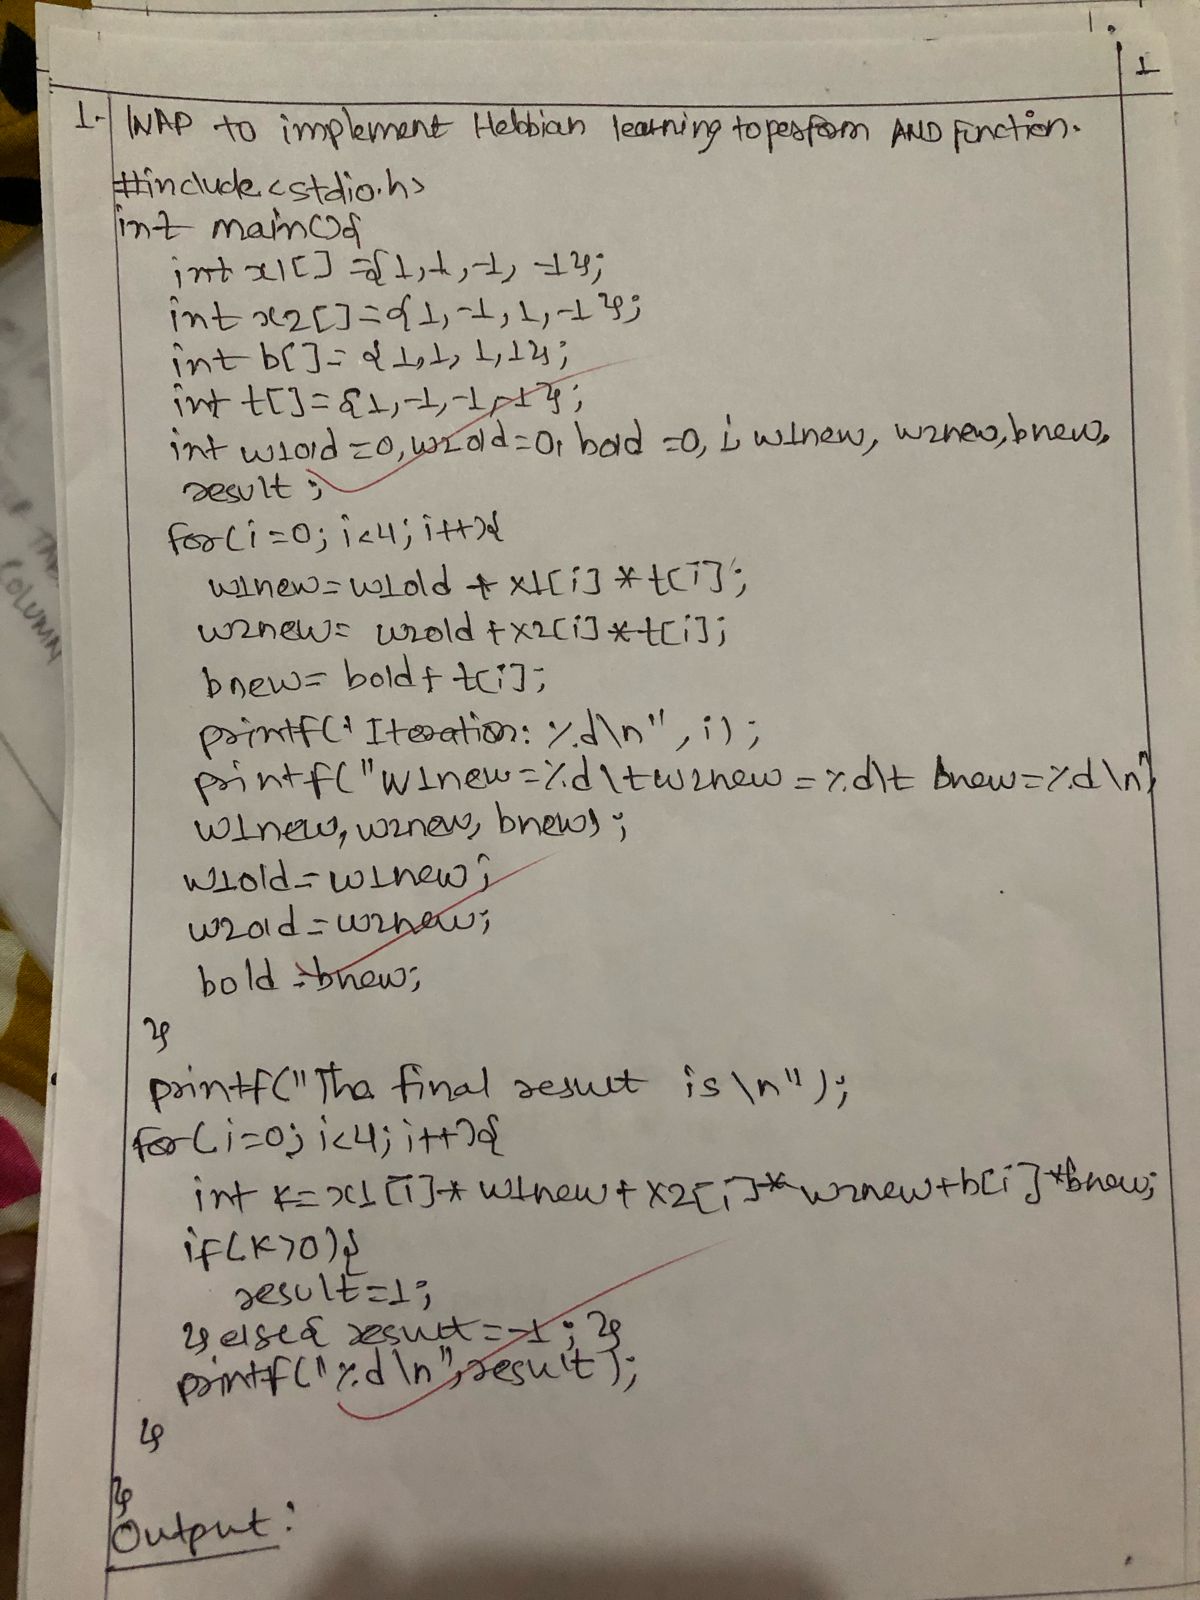 1
1. WAP to implement Hebbian learning to perform AND function.
#include <stdio.h>
int main(){
int x1[] = {1,1,-1, -1};
int x2[] = {1,-1,1,-1};
int b[] = {1,1,1,1};
int t[] = {1,-1,-1,-1};
int w1old =0, w2old =0, bold =0, i, w1new, w2new, bnew,
result;
for(i=0; i<4; i++){
w1new = w1old + x1[i] * t[i];
w2new = w2old + x2[i] * t[i];
bnew = bold + t[i];
printf("Iteration: %d\n", i);
printf("w1new=%d\tw2new=%d\t bnew=%d\n",
w1new, w2new, bnew);
w1old = w1new;
w2old = w2new;
bold = bnew;
}
printf("The final result is \n");
for(i=0; i<4; i++){
int k= x1[i]* w1new + x2[i]* w2new+b[i]*bnew;
if(k>0){
result=1;
} else{ result = -1; }
printf("%d\n", result);
}
}
Output: